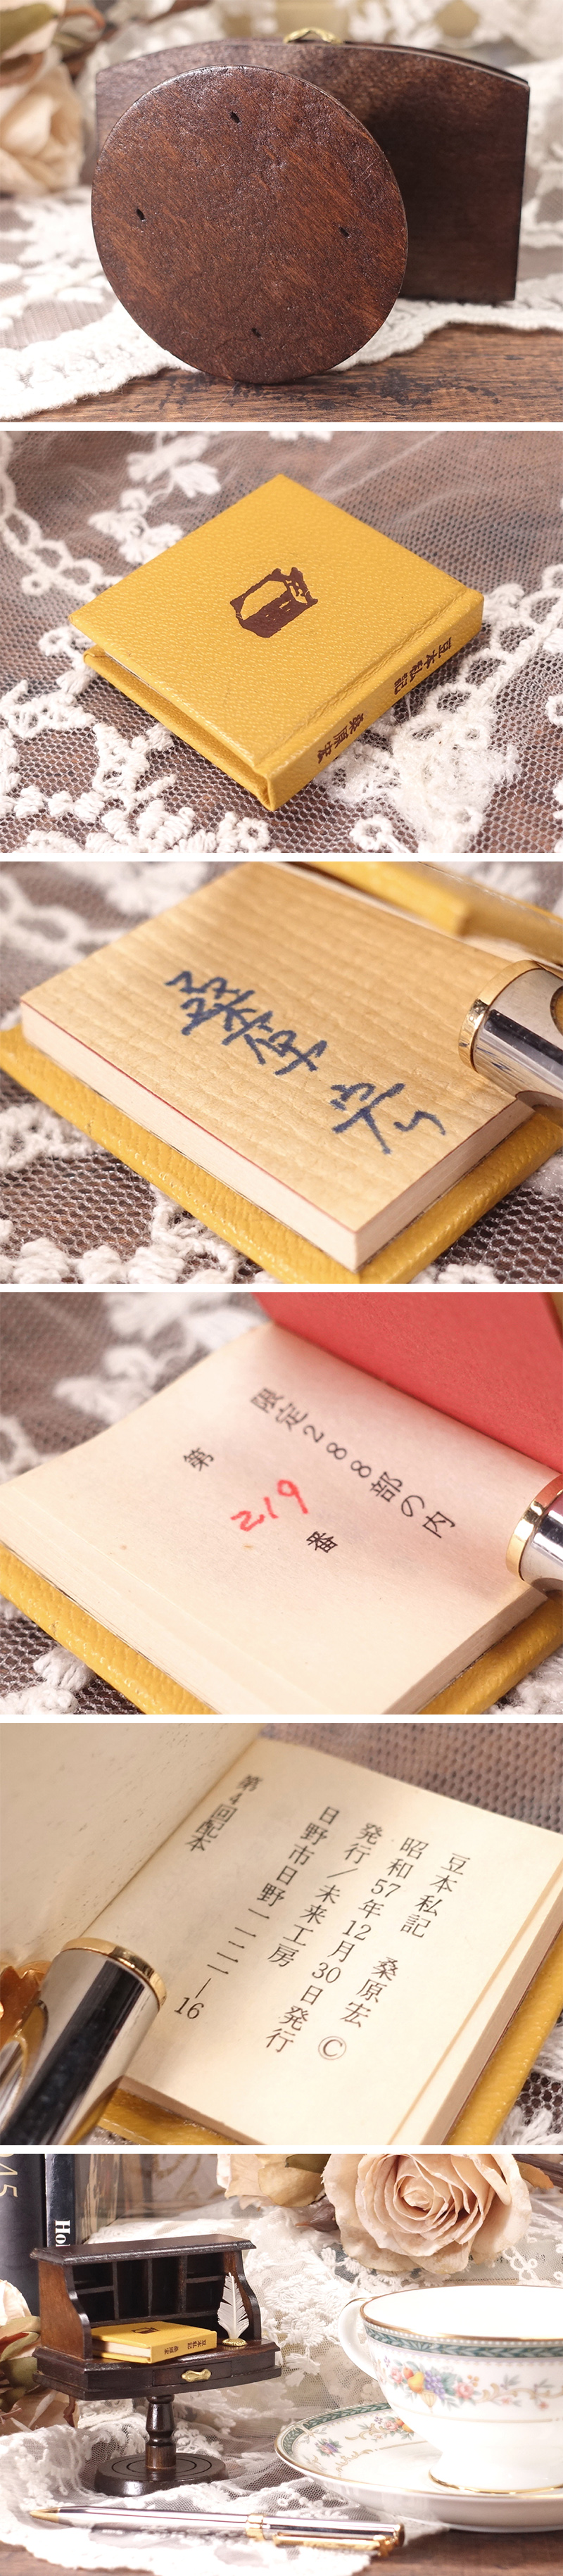 豆本私記
桑原宏
桑原宏
限定288部の内
第
219
番
豆本私記　桑原宏 ©
昭和57年12月30日発行
発行／未来工房
日野市日野一一二二—16
第4回配本
45
Ho
豆本私記
桑原宏